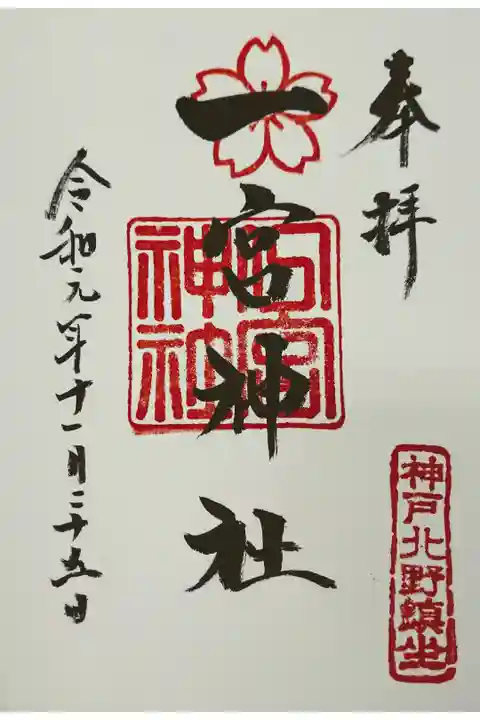 奉拝
神戸北野鎮坐
一宮神社
神社
令和元年十一月二十五日